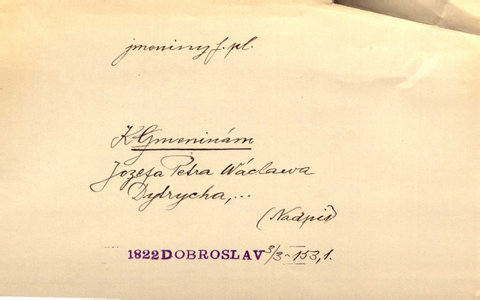 jmeniny f. pl.
K Gmeninám
Jozefa Petra Wáclawa
Dytrycha,...
(Nadpis)
1822 DOBROSLAV 3/3 - 153, 1.